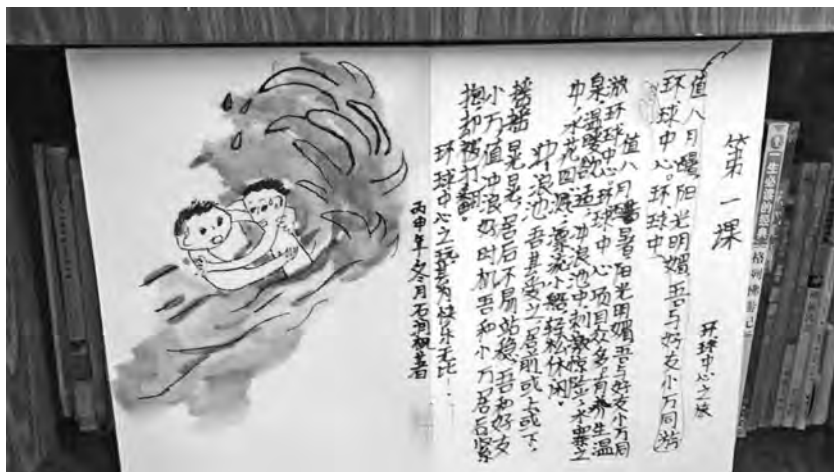 第一课
环球中心之旅
值八月，阳光明媚，吾与好友小万同游
环球中心。环球中
值八月暑阳光明媚吾与好友小万同
游环球中心，环球中心项目众多，有养生温
泉，温暖舒适，冲浪池中刺激惊险，水寨之
中，水花四溅，漂流小艇轻松休闲。
冲浪池，吾甚爱之，居前或上或下，
摇摇晃晃，居后不易站稳，吾和好友
小万值冲浪好时机，吾和小万居后紧
抱，却被打翻。
环球中心之玩甚为快乐无比！
丙申年冬月石润枫书
一生必读的经典
格列佛游记